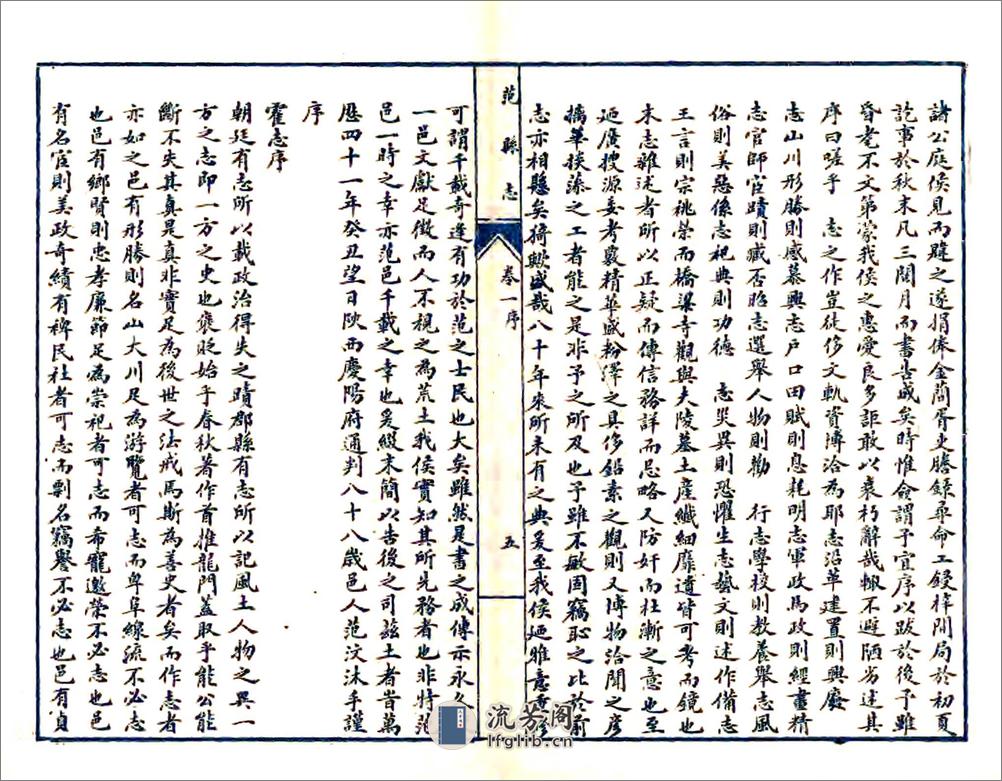 諸公庭侯見而韙之遂捐俸金蕳胥史謄錄尋命工鋟梓開局於初夏
訖事於秋末凡三閱月而書告成矣時惟僉謂予宜序以跋於後予雖
昏耄不文第蒙我侯之惠愛良多詎敢以衰朽辭哉輒不避陋劣述其
序曰嗟乎 志之作豈徒侈文軌資博洽為耶志沿革建置則興廢
志山川形勝則感慕興志戶口田賦則息耗明志軍政馬政則經畫精
志官師宦蹟則臧否昭志選舉人物則勸 行志學校則教養舉志風
俗則美惡係志祀典則功德 志災異則恐懼生志藝文則述作備志
王言則宗祧榮而橋梁寺觀與夫陵墓土產纖細靡遺皆可考而鏡也
末志雜述者所以正疑而傳信務詳而忌略又防奸而杜漸之意也至
廼廣搜源委考覈精華盛粉澤之具侈鉛素之觀則又博物洽聞之彥
摛華掞藻之工者能之是非予之所及也予雖不敏固竊恥之比於前
志亦相懸矣猗歟盛哉八十年來所未有之典爰至我侯廼雅意重修
范縣志
卷一序
五
可謂千載奇逢有功於范之士民也大矣雖然是書之成傳示永久
一邑文獻足徵而人不視之為荒土我侯實知其所先務者也非特范
邑一時之幸亦范邑千載之幸也爰綴末簡以告後之司茲土者昔萬
歷四十一年癸丑望日陜西慶陽府通判八十八歲邑人范汶沐手謹
序
霍志序
朝廷有志所以載政治得失之蹟郡縣有志所以記風土人物之異一
方之志即一方之史也褒貶始乎春秋著作首推龍門蓋取乎能公能
斷不失其真是真非實足為後世之法戒馬斯為善史者矣而作志者
亦如之邑有形勝則名山大川足為游覽者可志而卑阜線流不必志
也邑有鄉賢則忠孝廉節足為崇祀者可志而希寵邀榮不必志也邑
有名宦則美政奇績有裨民社者可志而剽名竊譽不必志也邑有貞
流芳阁
lfglib.cn